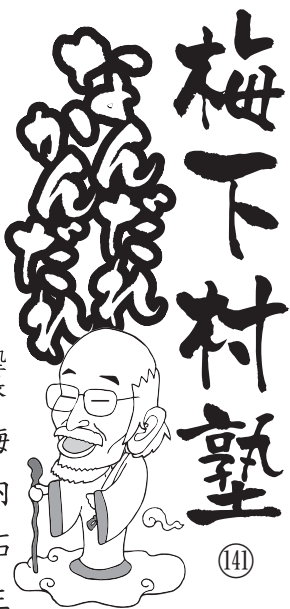 梅下村塾
141
なんだれ
かんだれ